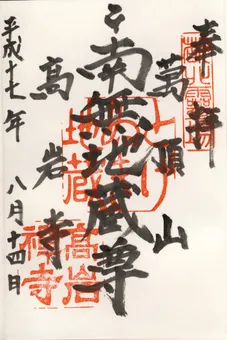 奉拝
萬頂山
南無地蔵尊
高岩寺
平成十七年 八月十四日
地蔵
高岩禅寺